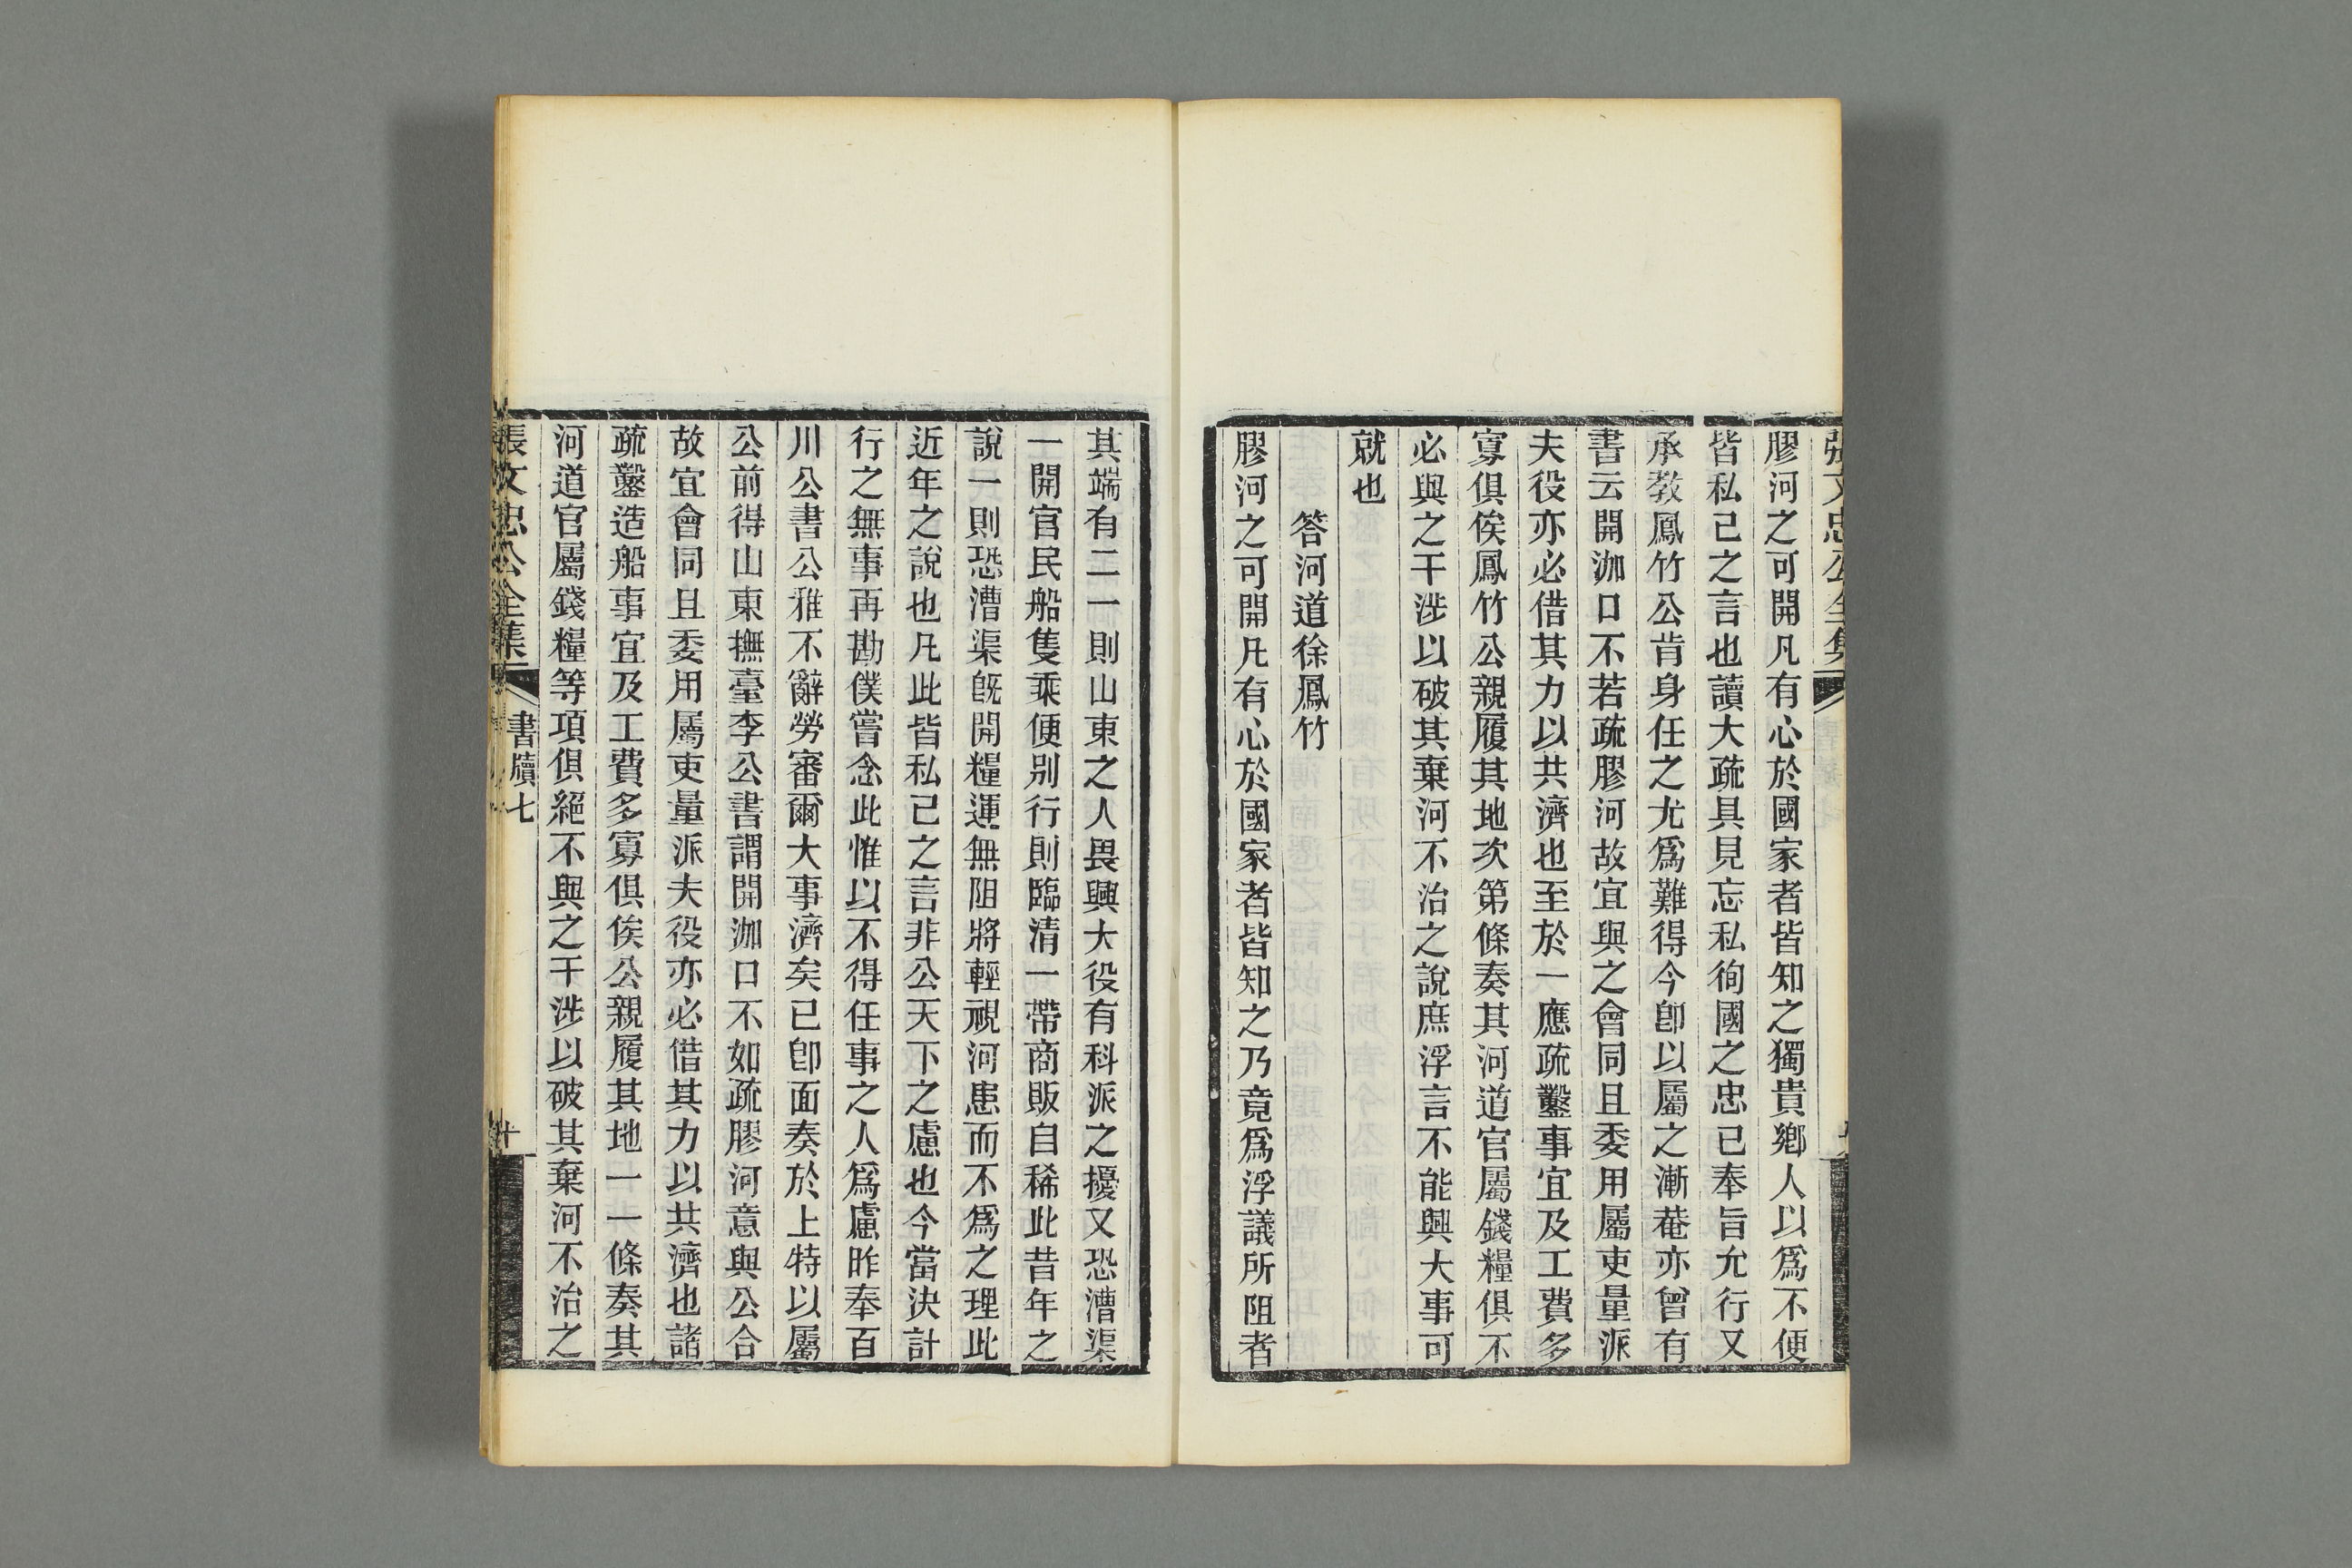 張文忠公全集
膠河之可開凡有心於國家者皆知之獨貴鄉人以爲不便
皆私己之言也讀大疏具見忘私徇國之忠已奉旨允行又
承教鳳竹公肯身任之尤爲難得今卽以屬之漸菴亦曾有
書云開泇口不若疏膠河故宜與之會同且委用屬吏量派
夫役亦必借其力以共濟也至於一應疏鑿事宜及工費多
寡俱俟鳳竹公親履其地次第條奏其河道官屬錢糧俱不
必與之干涉以破其棄河不治之說庶浮言不能興大事可
就也
答河道徐鳳竹
膠河之可開凡有心於國家者皆知之乃竟爲浮議所阻者
其端有二一則山東之人畏興大役有科派之擾又恐漕渠
一開官民船隻乘便別行則臨清一帶商販自稀此昔年之
說一則恐漕渠旣開糧運無阻將輕視河患而不爲之理此
近年之說也凡此皆私己之言非公天下之慮也今當決計
行之無事再勘僕嘗念此惟以不得任事之人爲慮昨奉百
川公書公雅不辭勞審爾大事濟矣已卽面奏於上特以屬
公前得山東撫臺李公書謂開泇口不如疏膠河意與公合
故宜會同且委用屬吏量派夫役亦必借其力以共濟也諸
疏鑿造船事宜及工費多寡俱俟公親履其地一一條奏其
河道官屬錢糧等項俱絕不與之干涉以破其棄河不治之
張文忠公全集
書牘七
十